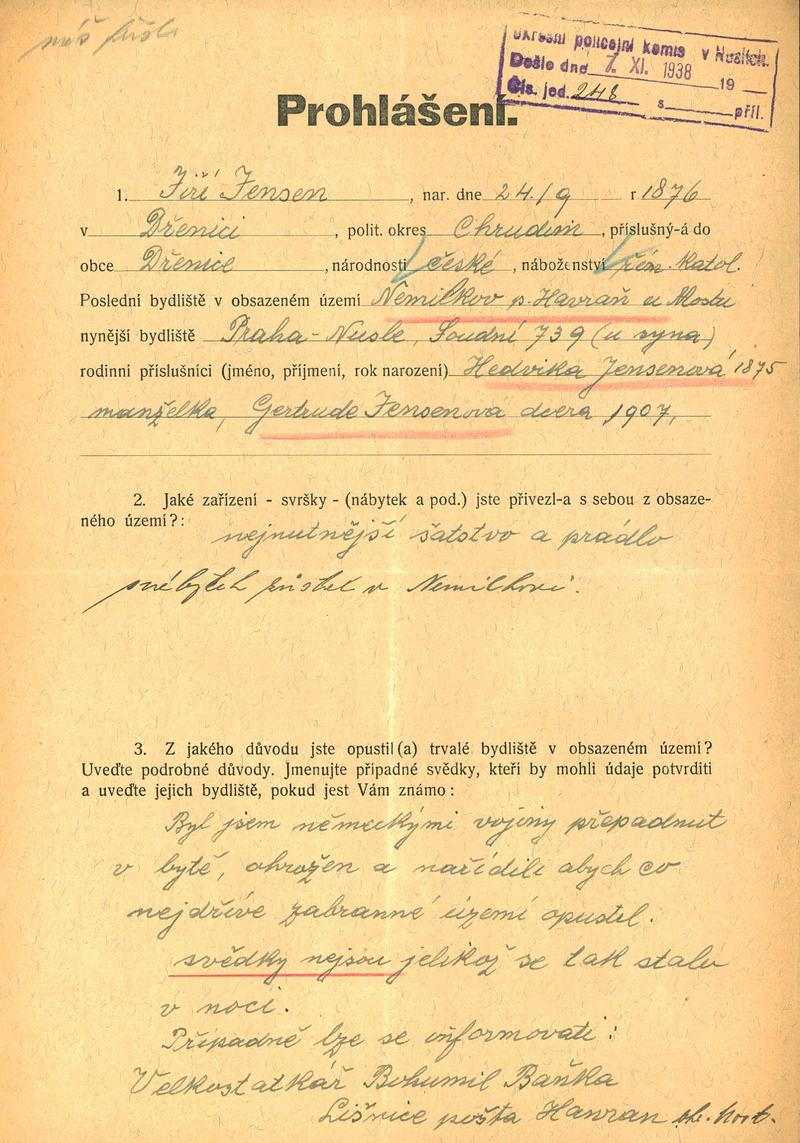 Okresní policejní komis v Nuslích.
Došlo dne 7. XI. 1938 19
Čís. jed. 248 s příl.
Prohlášení.
1. Jiří Jensen, nar. dne 24./9 r 1876
v Dřenici, polit. okres Chrudim, příslušný-á do
obce Dřenice, národnosti české, náboženství řím. katol.
Poslední bydliště v obsazeném území Němilkov p. Havraň u Mostu
nynější bydliště Praha-Nusle, Soudní 739 (u syna)
rodinní příslušníci (jméno, příjmení, rok narození) Hedvika Jensenová 1875
manželka, Gertrude Jensenová dcera 1907,
2. Jaké zařízení - svršky - (nábytek a pod.) jste přivezl-a s sebou z obsaze-
ného území?: nejnutnější šatstvo a prádlo
nábytek zůstal v Nemilkově.
3. Z jakého důvodu jste opustil(a) trvalé bydliště v obsazeném území?
Uveďte podrobné důvody. Jmenujte případné svědky, kteří by mohli údaje potvrditi
a uveďte jejich bydliště, pokud jest Vám známo:
Byl jsem německými vojíny přepadnut
v bytě, ohrožen a nařídili abych co
nejdříve zabranné území opustil.
svědky nejsou jelikož se tak stalo
v noci.
Případně lze se informovati:
Velkostatkář Bohumil Baňka
Lišnice pošta Havran